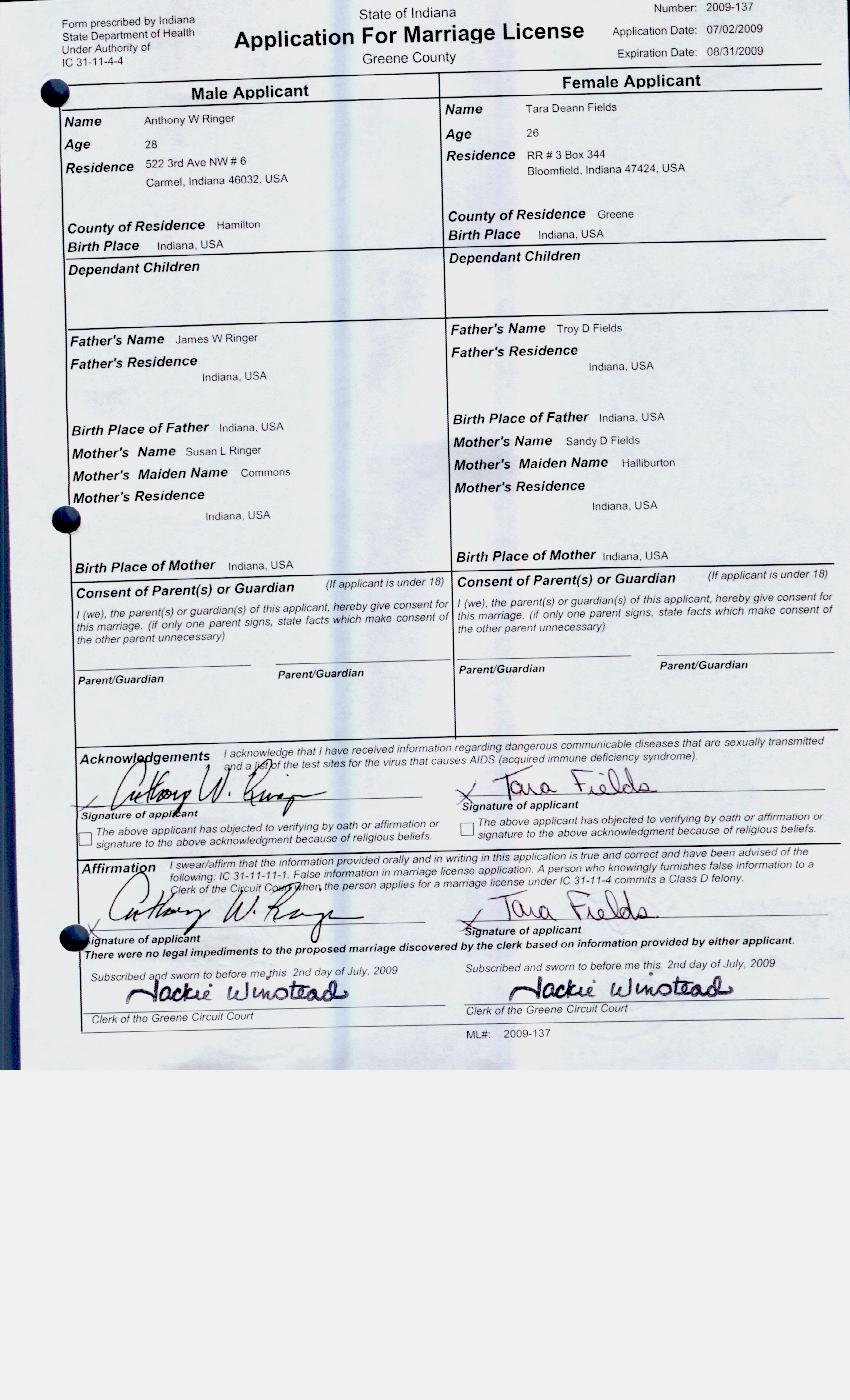 Form prescribed by Indiana
State Department of Health
Under Authority of
IC 31-11-4-4
State of Indiana
Application For Marriage License
Greene County
Number: 2009-137
Application Date: 07/02/2009
Expiration Date: 08/31/2009
Male Applicant
Name Anthony W Ringer
Age 28
Residence 522 3rd Ave NW # 6
Carmel, Indiana 46032, USA
County of Residence Hamilton
Birth Place Indiana, USA
Dependant Children
Father's Name James W Ringer
Father's Residence
Indiana, USA
Birth Place of Father Indiana, USA
Mother's Name Susan L Ringer
Mother's Maiden Name Commons
Mother's Residence
Indiana, USA
Birth Place of Mother Indiana, USA
Consent of Parent(s) or Guardian (If applicant is under 18)
I (we), the parent(s) or guardian(s) of this applicant, hereby give consent for
this marriage. (if only one parent signs, state facts which make consent of
the other parent unnecessary)
Parent/Guardian Parent/Guardian
Female Applicant
Name Tara Deann Fields
Age 26
Residence RR # 3 Box 344
Bloomfield, Indiana 47424, USA
County of Residence Greene
Birth Place Indiana, USA
Dependant Children
Father's Name Troy D Fields
Father's Residence
Indiana, USA
Birth Place of Father Indiana, USA
Mother's Name Sandy D Fields
Mother's Maiden Name Halliburton
Mother's Residence
Indiana, USA
Birth Place of Mother Indiana, USA
Consent of Parent(s) or Guardian (If applicant is under 18)
I (we), the parent(s) or guardian(s) of this applicant, hereby give consent for
this marriage. (if only one parent signs, state facts which make consent of
the other parent unnecessary)
Parent/Guardian Parent/Guardian
Acknowledgements I acknowledge that I have received information regarding dangerous communicable diseases that are sexually transmitted
and a list of the test sites for the virus that causes AIDS (acquired immune deficiency syndrome).
x Anthony W. Ringer
Signature of applicant
The above applicant has objected to verifying by oath or affirmation or
signature to the above acknowledgment because of religious beliefs.
x Tara Fields
Signature of applicant
The above applicant has objected to verifying by oath or affirmation or
signature to the above acknowledgment because of religious beliefs.
Affirmation I swear/affirm that the information provided orally and in writing in this application is true and correct and have been advised of the
following: IC 31-11-11-1. False information in marriage license application. A person who knowingly furnishes false information to a
Clerk of the Circuit Court when the person applies for a marriage license under IC 31-11-4 commits a Class D felony.
x Anthony W. Ringer
Signature of applicant
x Tara Fields
Signature of applicant
There were no legal impediments to the proposed marriage discovered by the clerk based on information provided by either applicant.
Subscribed and sworn to before me this 2nd day of July, 2009
Jackie Winstead
Clerk of the Greene Circuit Court
Subscribed and sworn to before me this 2nd day of July, 2009
Jackie Winstead
Clerk of the Greene Circuit Court
ML#: 2009-137